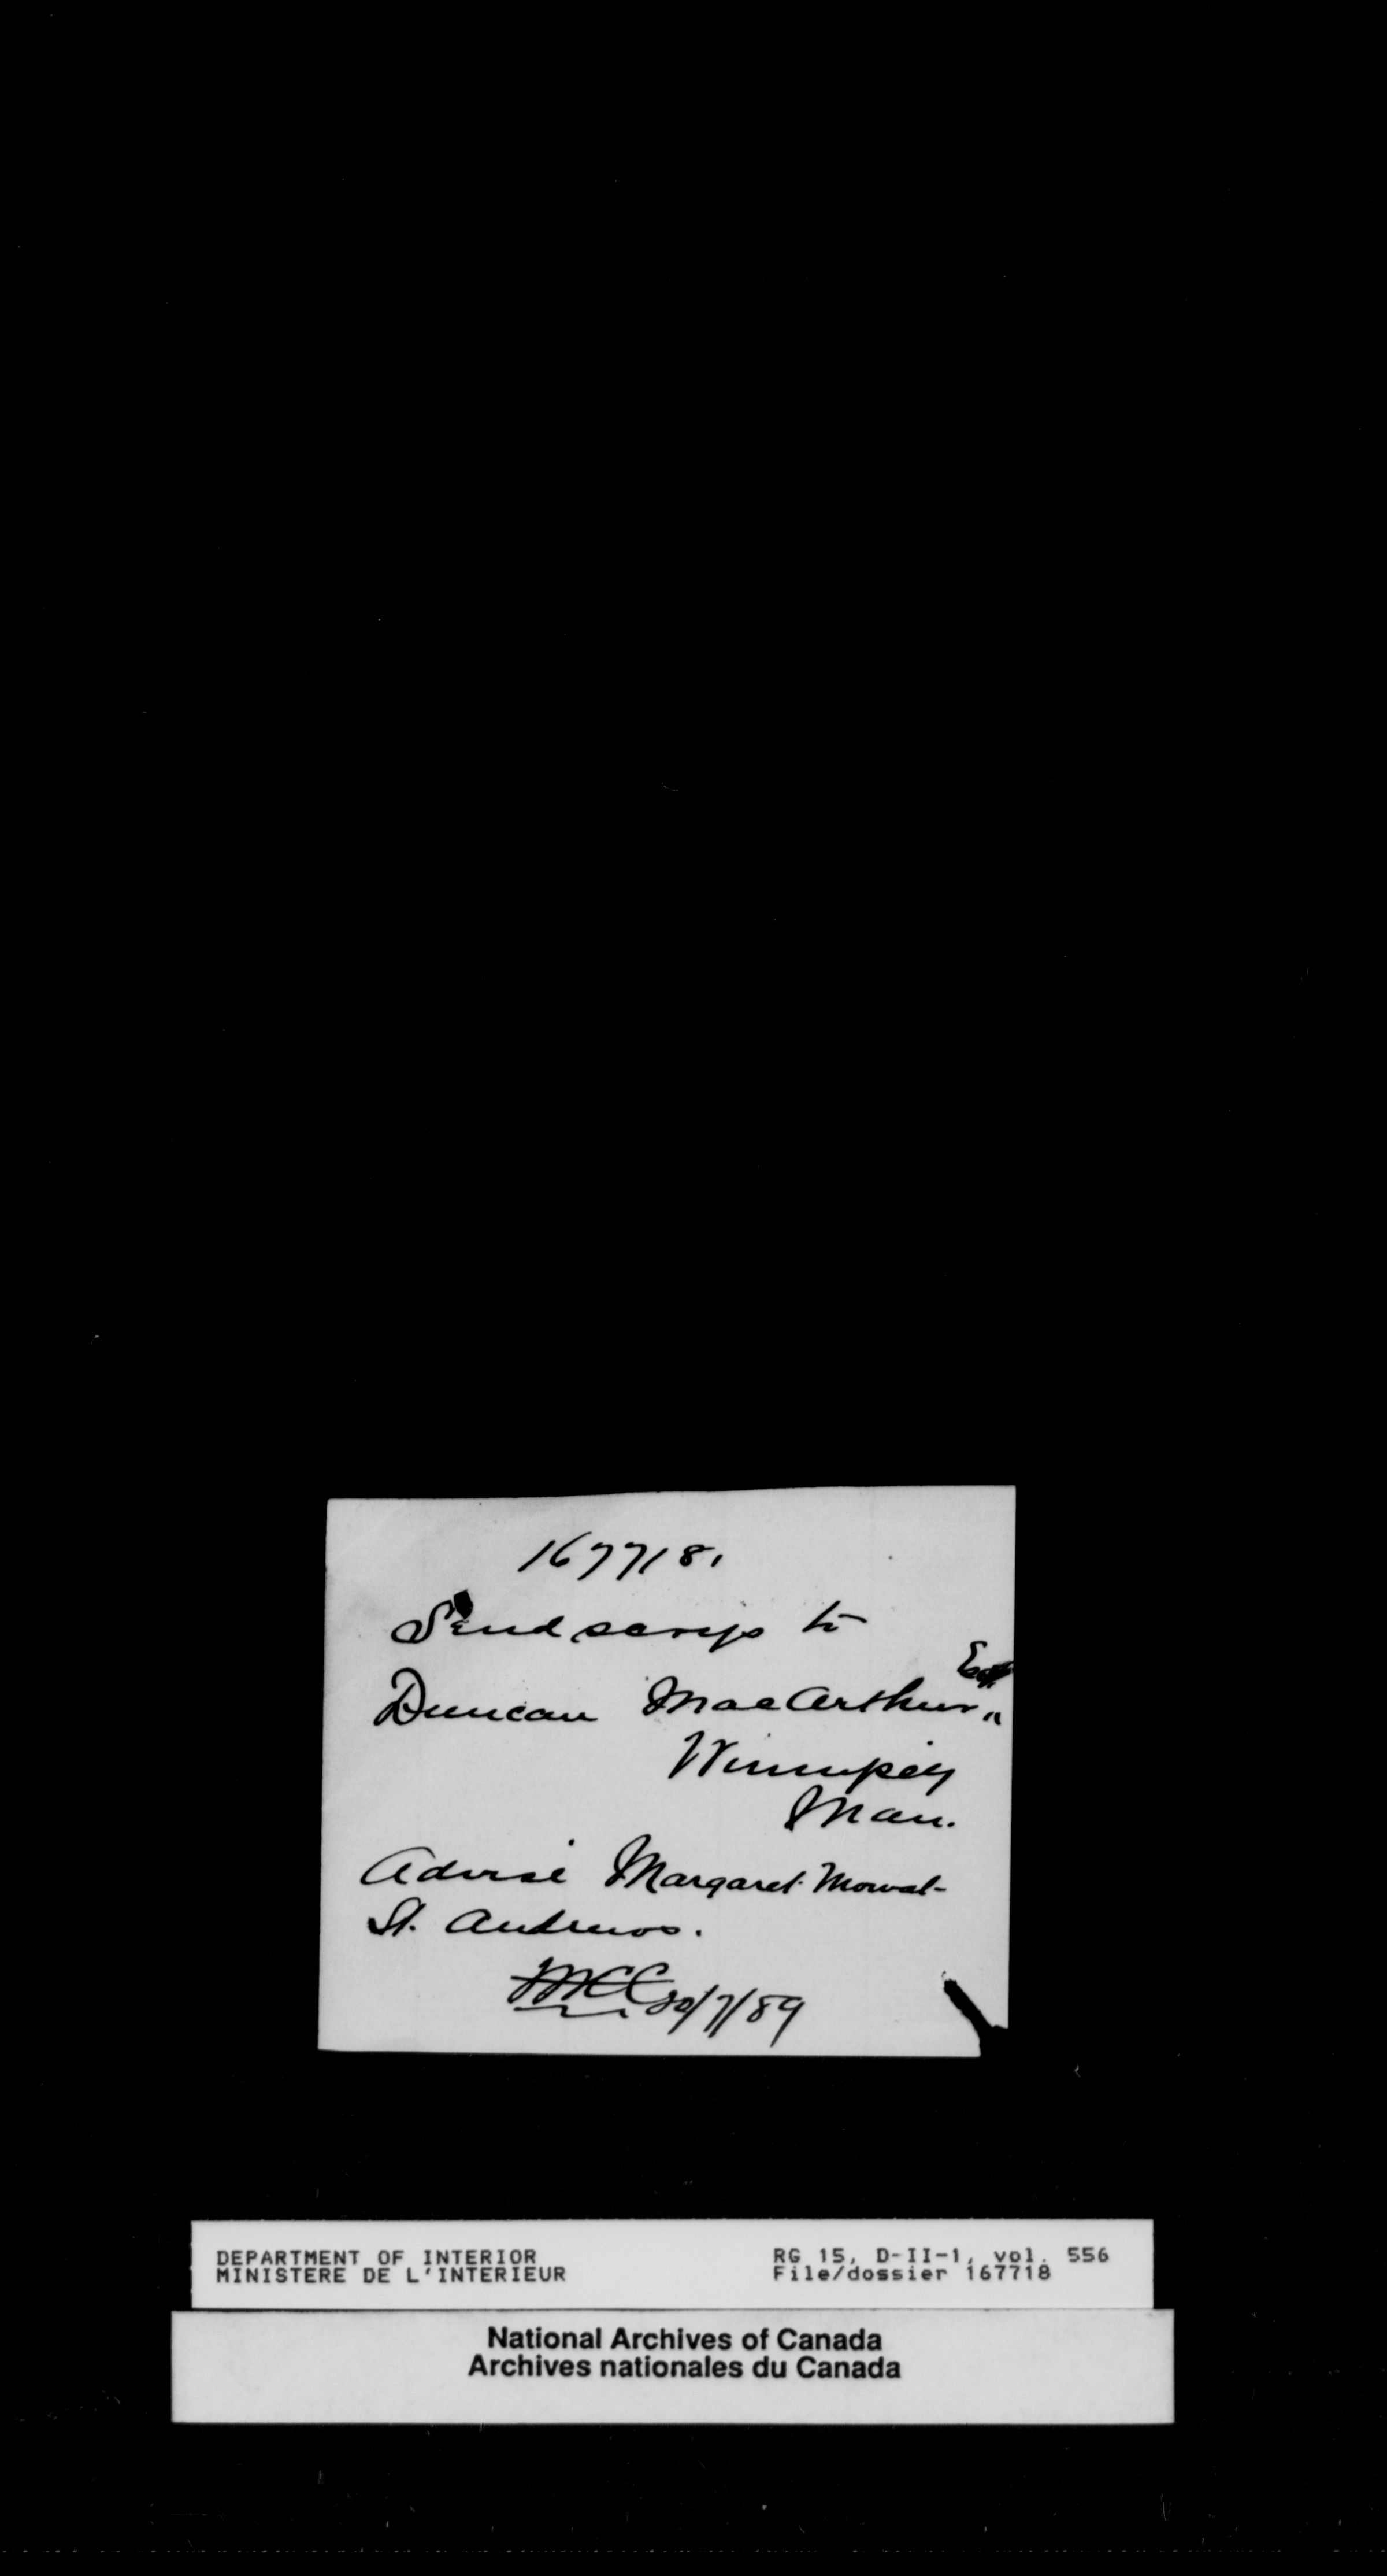 167718.
Send scrip to
Duncan MacArthur, Esq.
Winnipeg
Man.
Advise Margaret Mowat
St. Andrews.
20/7/89
DEPARTMENT OF INTERIOR
MINISTERE DE L'INTERIEUR
RG 15, D-II-1, vol. 556
File/dossier 167718
National Archives of Canada
Archives nationales du Canada